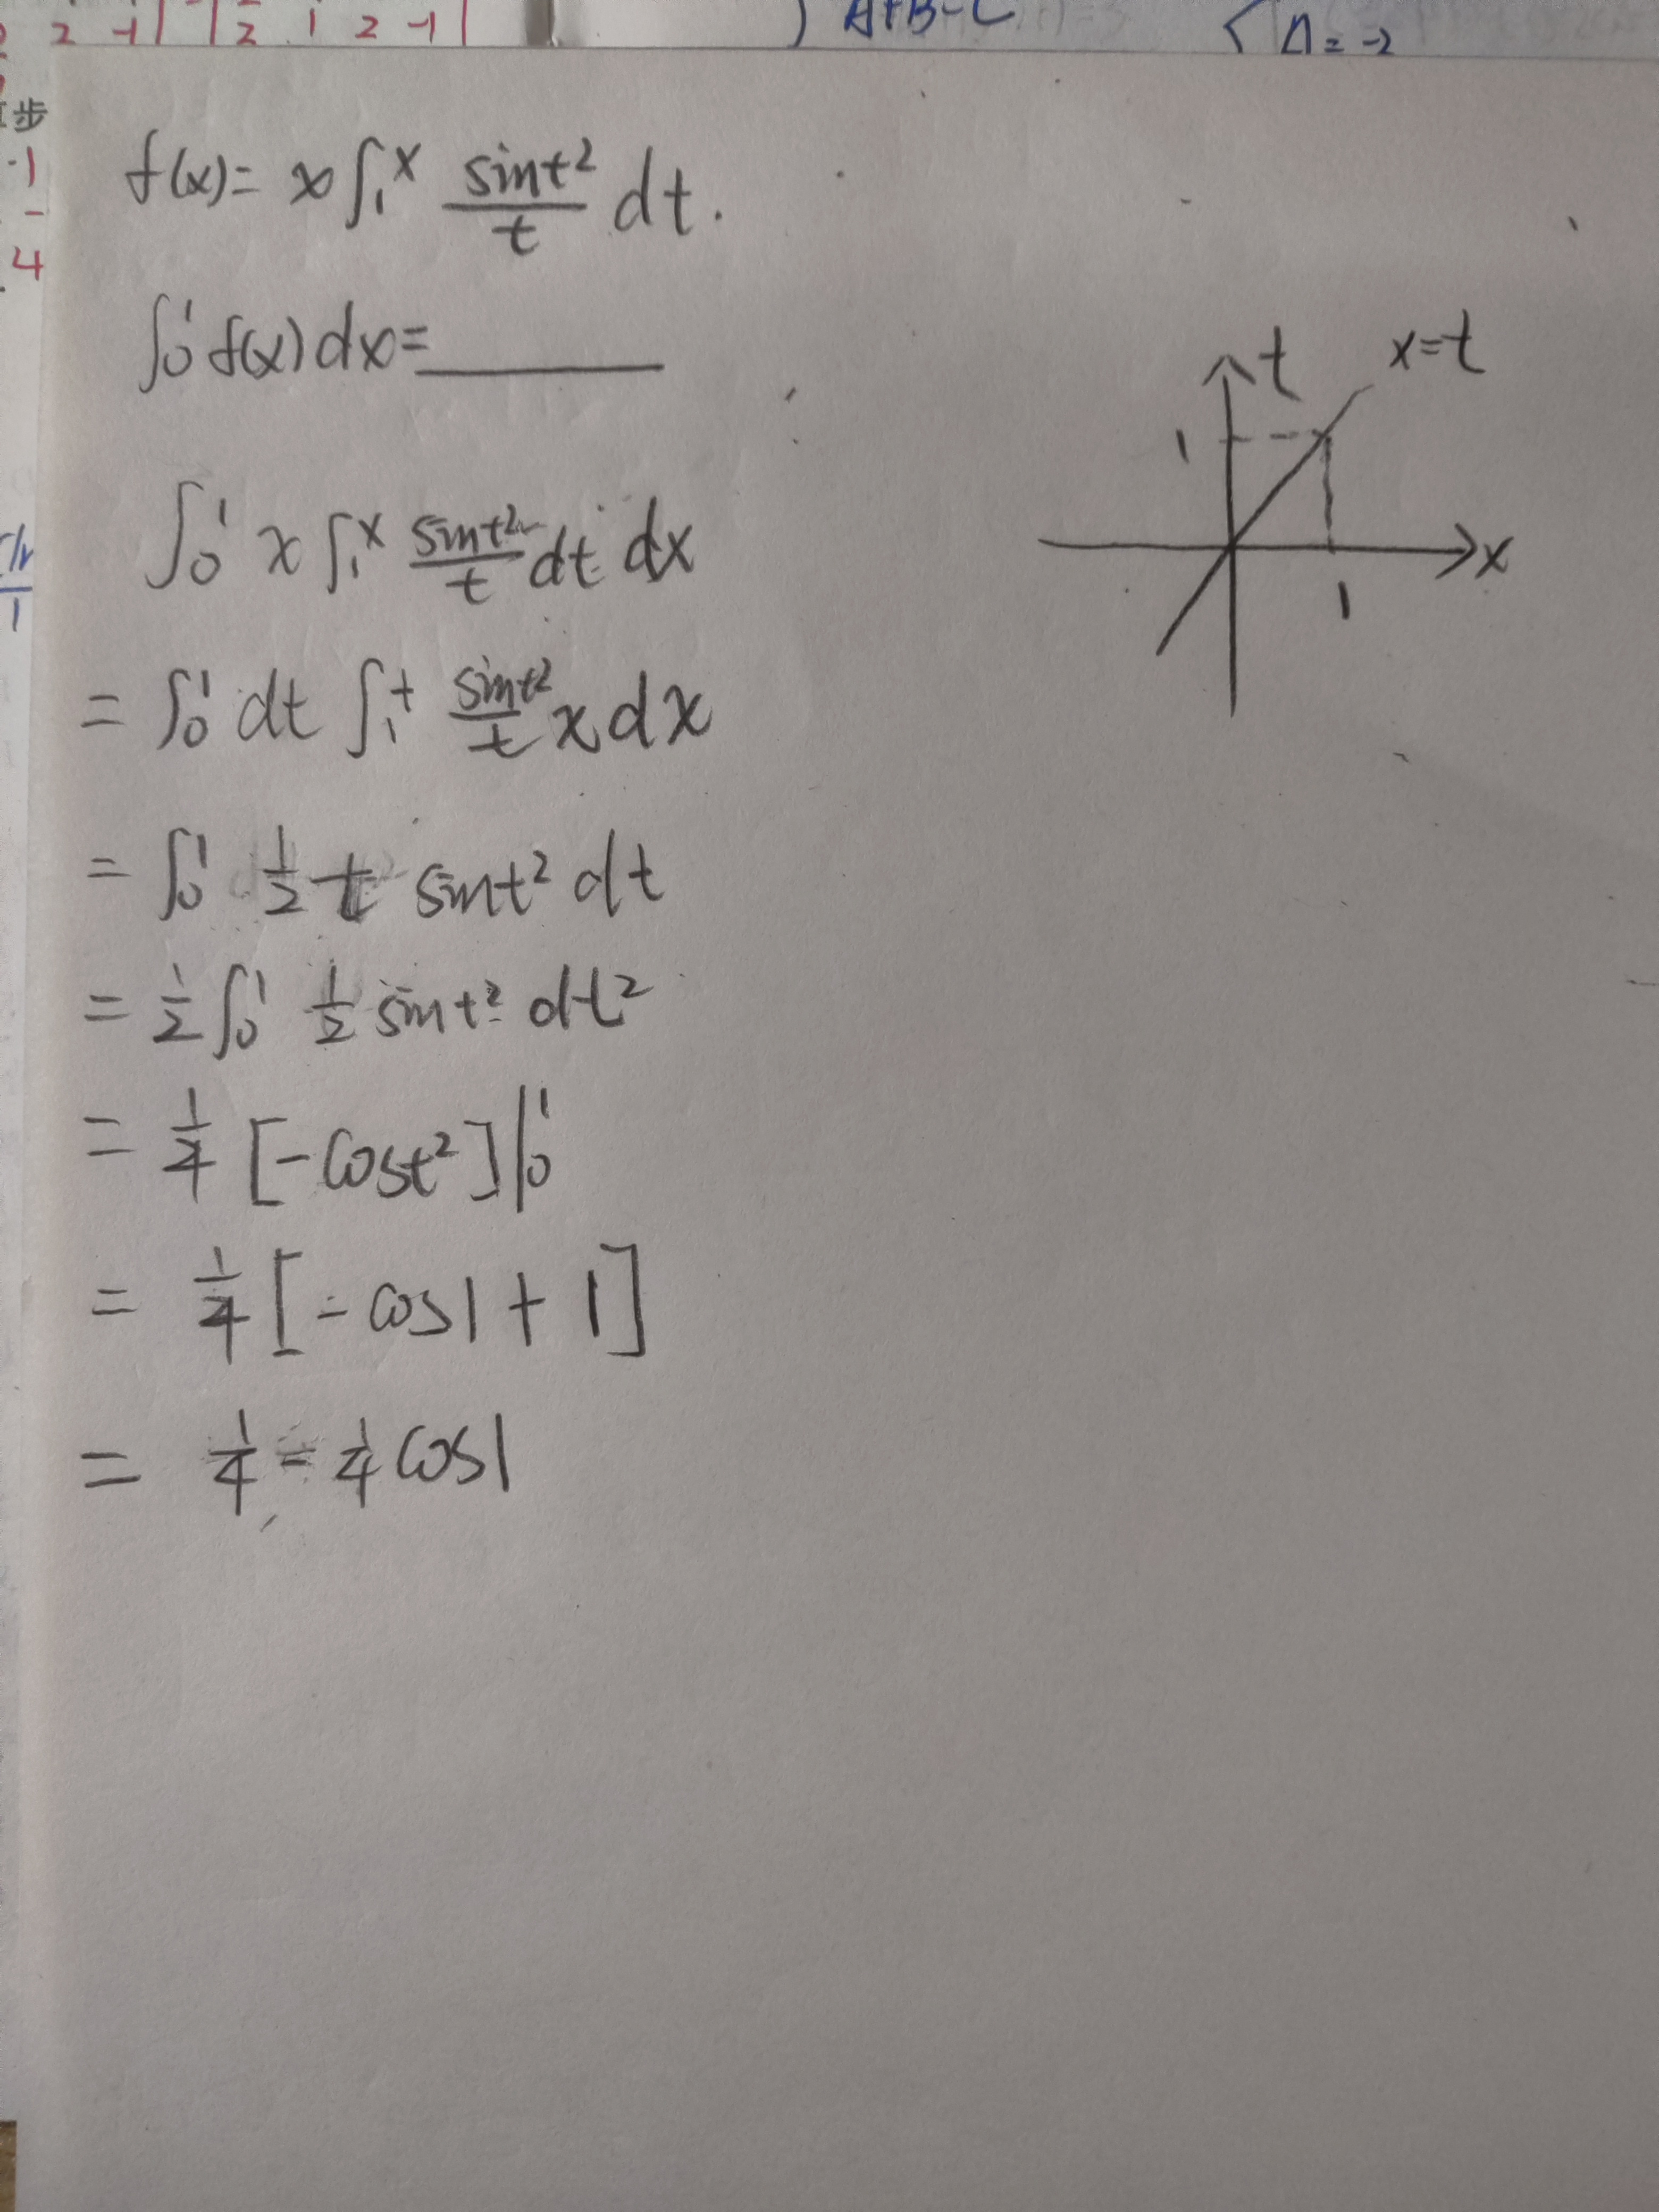 2 -1 | | 2 1 2 -1 |
) A+B-C
Λ = -2
步
-1
-
4
1
f(x)= x∫₁ˣ sint²/t dt.
∫₀¹ f(x)dx=______
t
x=t
1
x
1
∫₀¹ x ∫₁ˣ sint²/t dt dx
= ∫₀¹ dt ∫₁ᵗ sint²/t x dx
= ∫₀¹ 1/2 t sint² dt
= 1/2 ∫₀¹ 1/2 sint² dt²
= 1/4 [-cost²]|₀¹
= 1/4 [-cos1 + 1]
= 1/4 - 1/4 cos1